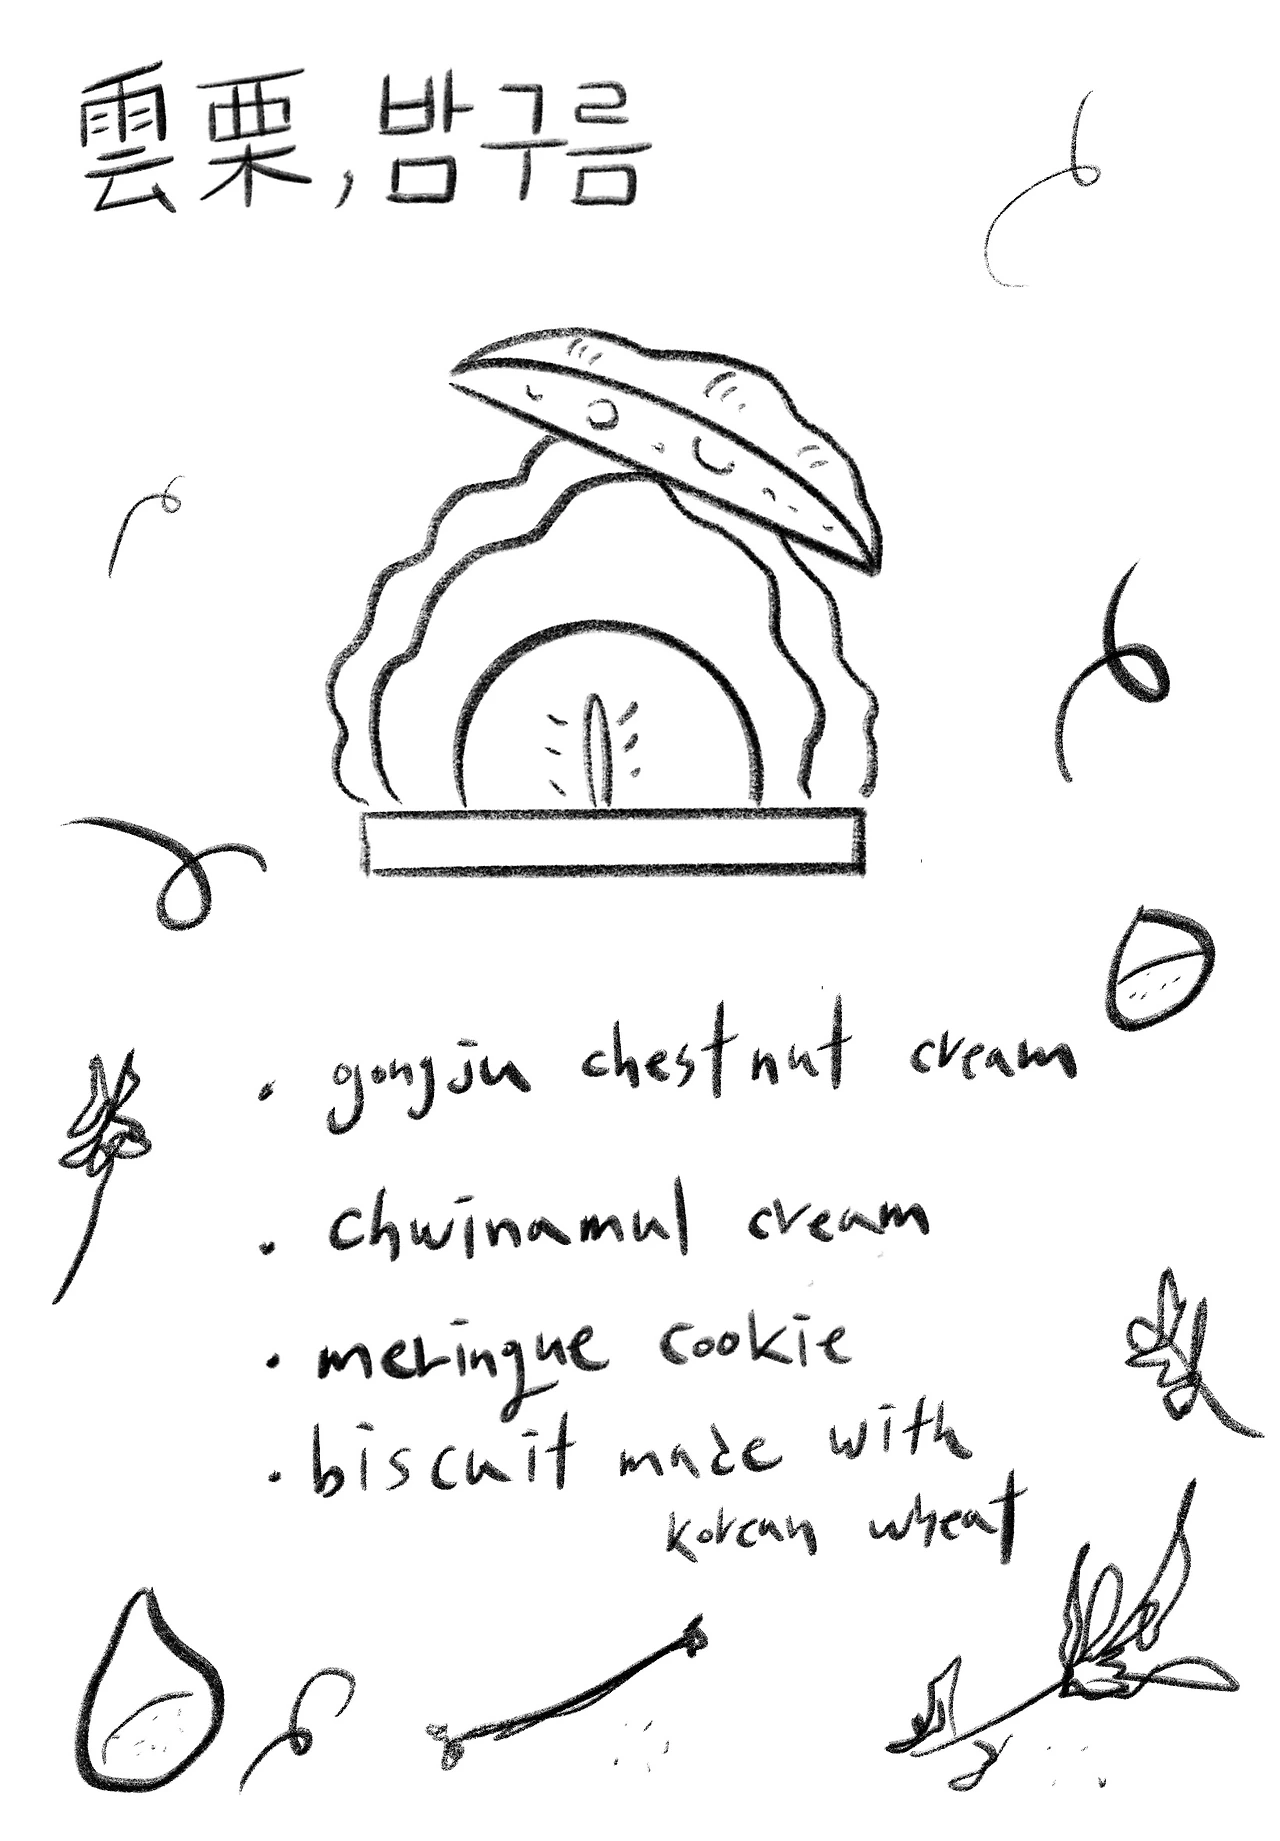 雲栗, 밤구름
· gongju chestnut cream
· chwinamul cream
· meringue cookie
· biscuit made with
korean wheat